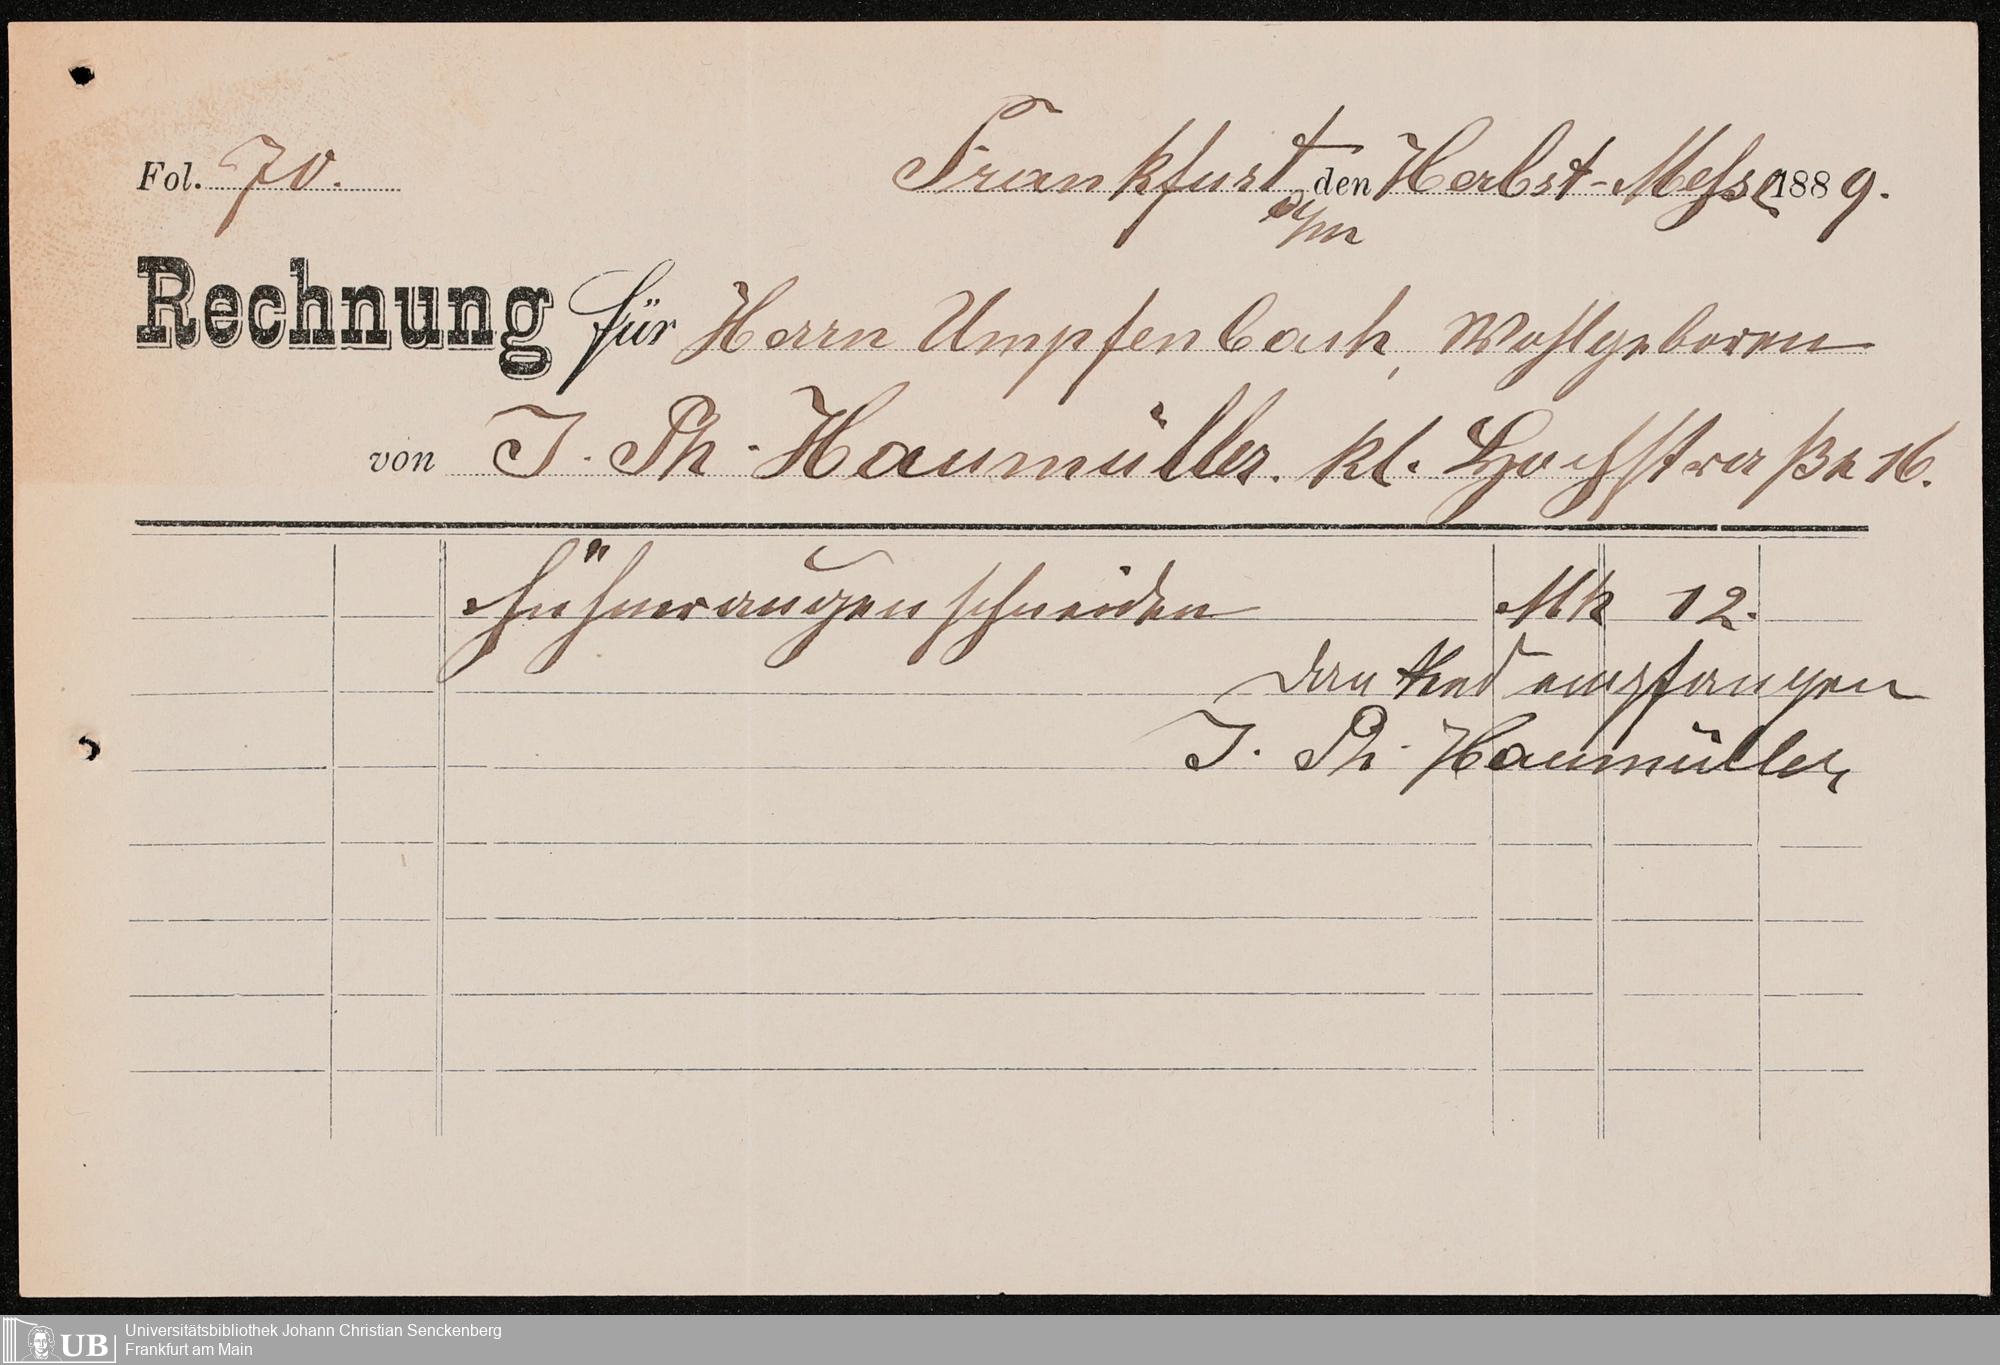 Fol. 70.
Frankfurt den Herbst-Messe 1889.
a/m
Rechnung für Herrn Umpfenbach, Wohlgeboren
von J. Ph. Haumüller. kl. Hochstraße 16.
Hühneraugenschneiden Mk 12.
dankend empfangen
J. Ph. Haumüller,
UB
Universitätsbibliothek Johann Christian Senckenberg
Frankfurt am Main